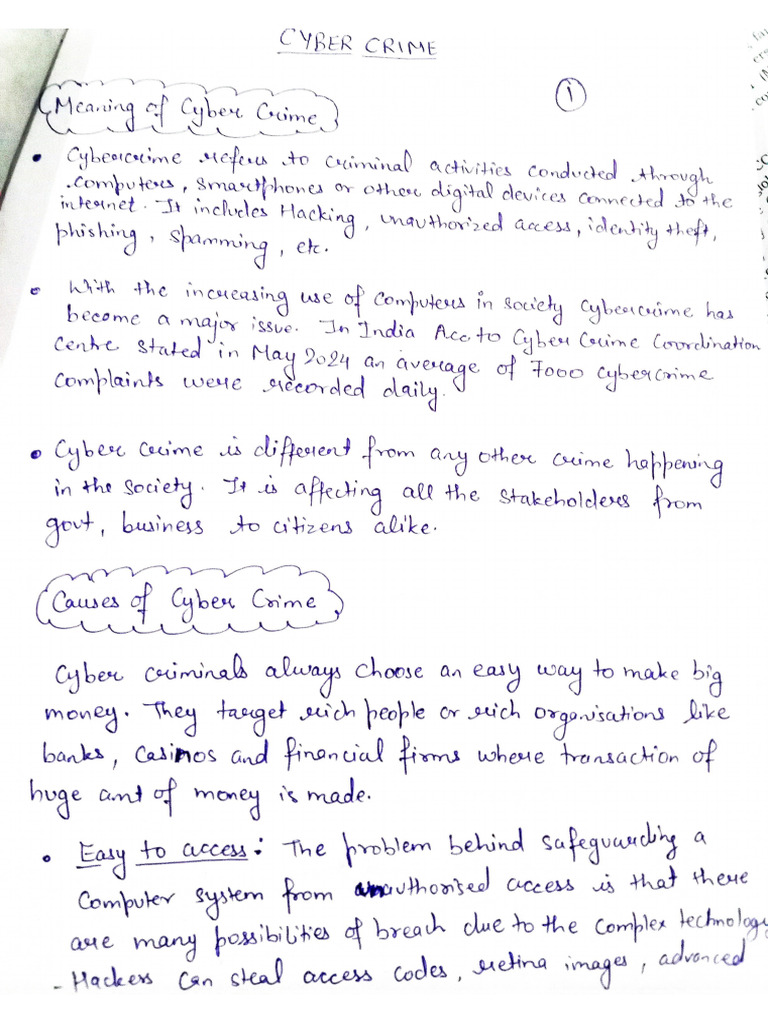 CYBER CRIME
1
Meaning of Cyber Crime
• Cybercrime refers to criminal activities conducted through
computers, smartphones or other digital devices connected to the
internet. It includes Hacking, unauthorized access, identity theft,
phishing, spamming, etc.
• With the increasing use of computers in society cybercrime has
become a major issue. In India Acc. to Cyber Crime Coordination
Centre stated in May 2024 an average of 7000 cybercrime
complaints were recorded daily.
• Cyber crime is different from any other crime happening
in the society. It is affecting all the stakeholders from
govt, business to citizens alike.
Causes of Cyber Crime
Cyber criminals always choose an easy way to make big
money. They target rich people or rich organisations like
banks, casinos and financial firms where transaction of
huge amt of money is made.
• Easy to access: The problem behind safeguarding a
computer system from unauthorised access is that there
are many possibilities of breach due to the complex technology
- Hackers can steal access codes, retina images, advanced